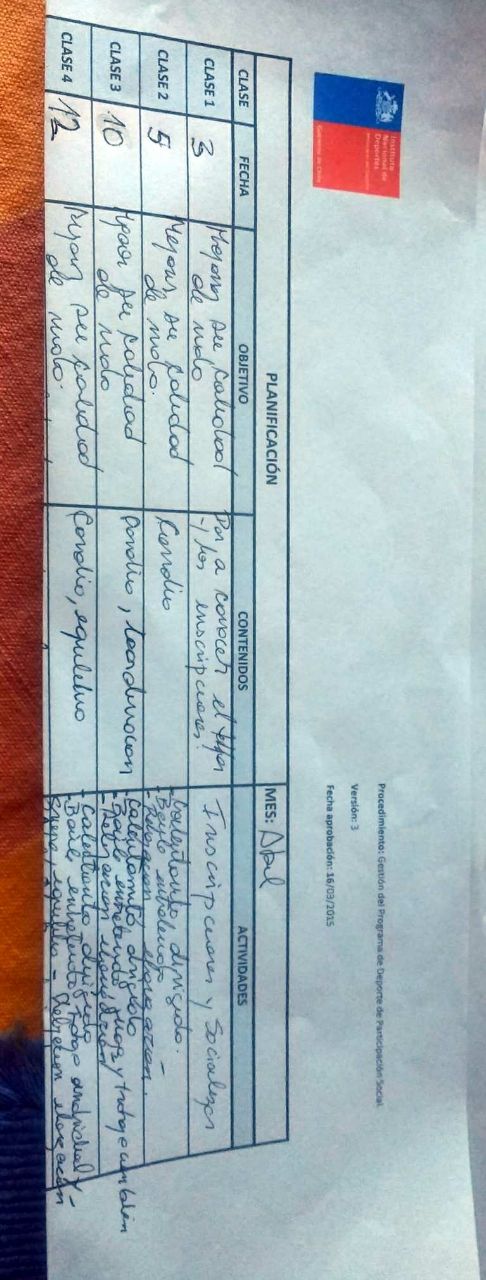 Instituto
Nacional de
Deportes
Gobierno de Chile
Procedimiento: Gestión del Programa de Deporte de Participación Social
Versión: 3
Fecha aprobación: 16/03/2015
PLANIFICACIÓN
MES: Abril
CLASE
FECHA
OBJETIVO
CONTENIDOS
ACTIVIDADES
CLASE 1
3
Mejorar su calidad
de vida
Dar a conocer el
y los inscripciones.
Inscripciones y Socializar
CLASE 2
5
Mejorar su calidad
de vida.
Cardio
- Calentamiento dirigido.
- Baile entretenido -
- Relajación elongación.
CLASE 3
10
Mejorar su calidad
de vida
Cardio, Coordinación
- Calentamiento dirigido
- Baile entretenido, juegos y trabajo
- Relajación elongación
CLASE 4
12
Mejorar su calidad
de vida.
Cardio, equilibrio
- Calentamiento dirigido
- Baile entretenido, trabajo individual y -
equilibrio - Relajación elongación